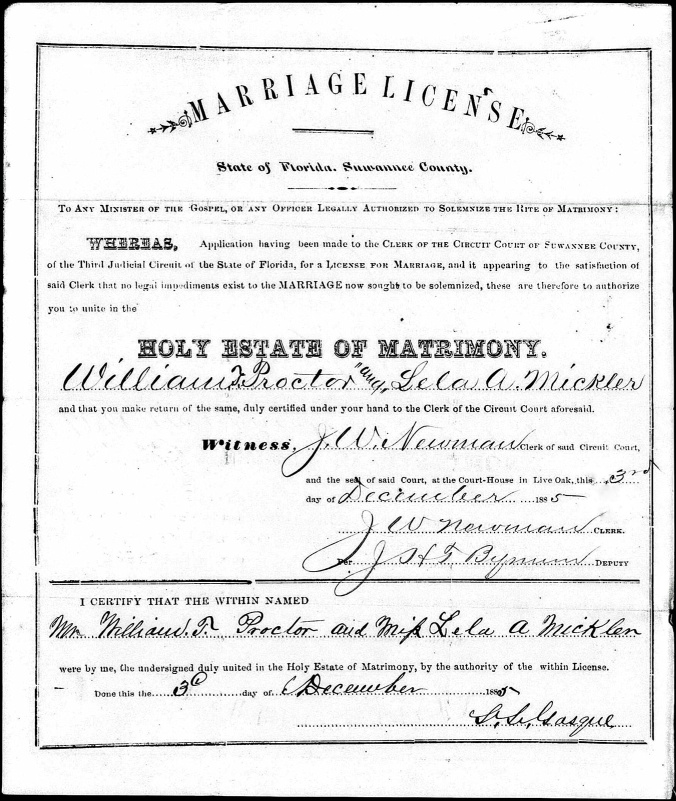 MARRIAGE LICENSE
State of Florida. Suwannee County.
TO ANY MINISTER OF THE GOSPEL, OR ANY OFFICER LEGALLY AUTHORIZED TO SOLEMNIZE THE RITE OF MATRIMONY:
WHEREAS, Application having been made to the CLERK OF THE CIRCUIT COURT OF SUWANNEE COUNTY,
of the Third Judicial Circuit of the State of Florida, for a LICENSE FOR MARRIAGE, and it appearing to the satisfaction of
said Clerk that no legal impediments exist to the MARRIAGE now sought to be solemnized, these are therefore to authorize
you to unite in the
HOLY ESTATE OF MATRIMONY.
William T. Proctor "and" Lela A. Mickler
and that you make return of the same, duly certified under your hand to the Clerk of the Circuit Court aforesaid.
Witness, J. W. Newman Clerk of said Circuit Court,
and the seal of said Court, at the Court-House in Live Oak, this 3rd
day of December 1885
J W Newman CLERK.
Per J H T Bynum DEPUTY
I CERTIFY THAT THE WITHIN NAMED
Mr. William. T. Proctor and Miss Lela A Mickler
were by me, the undersigned duly united in the Holy Estate of Matrimony, by the authority of the within License.
Done this the 3d day of December 1885
Gasque